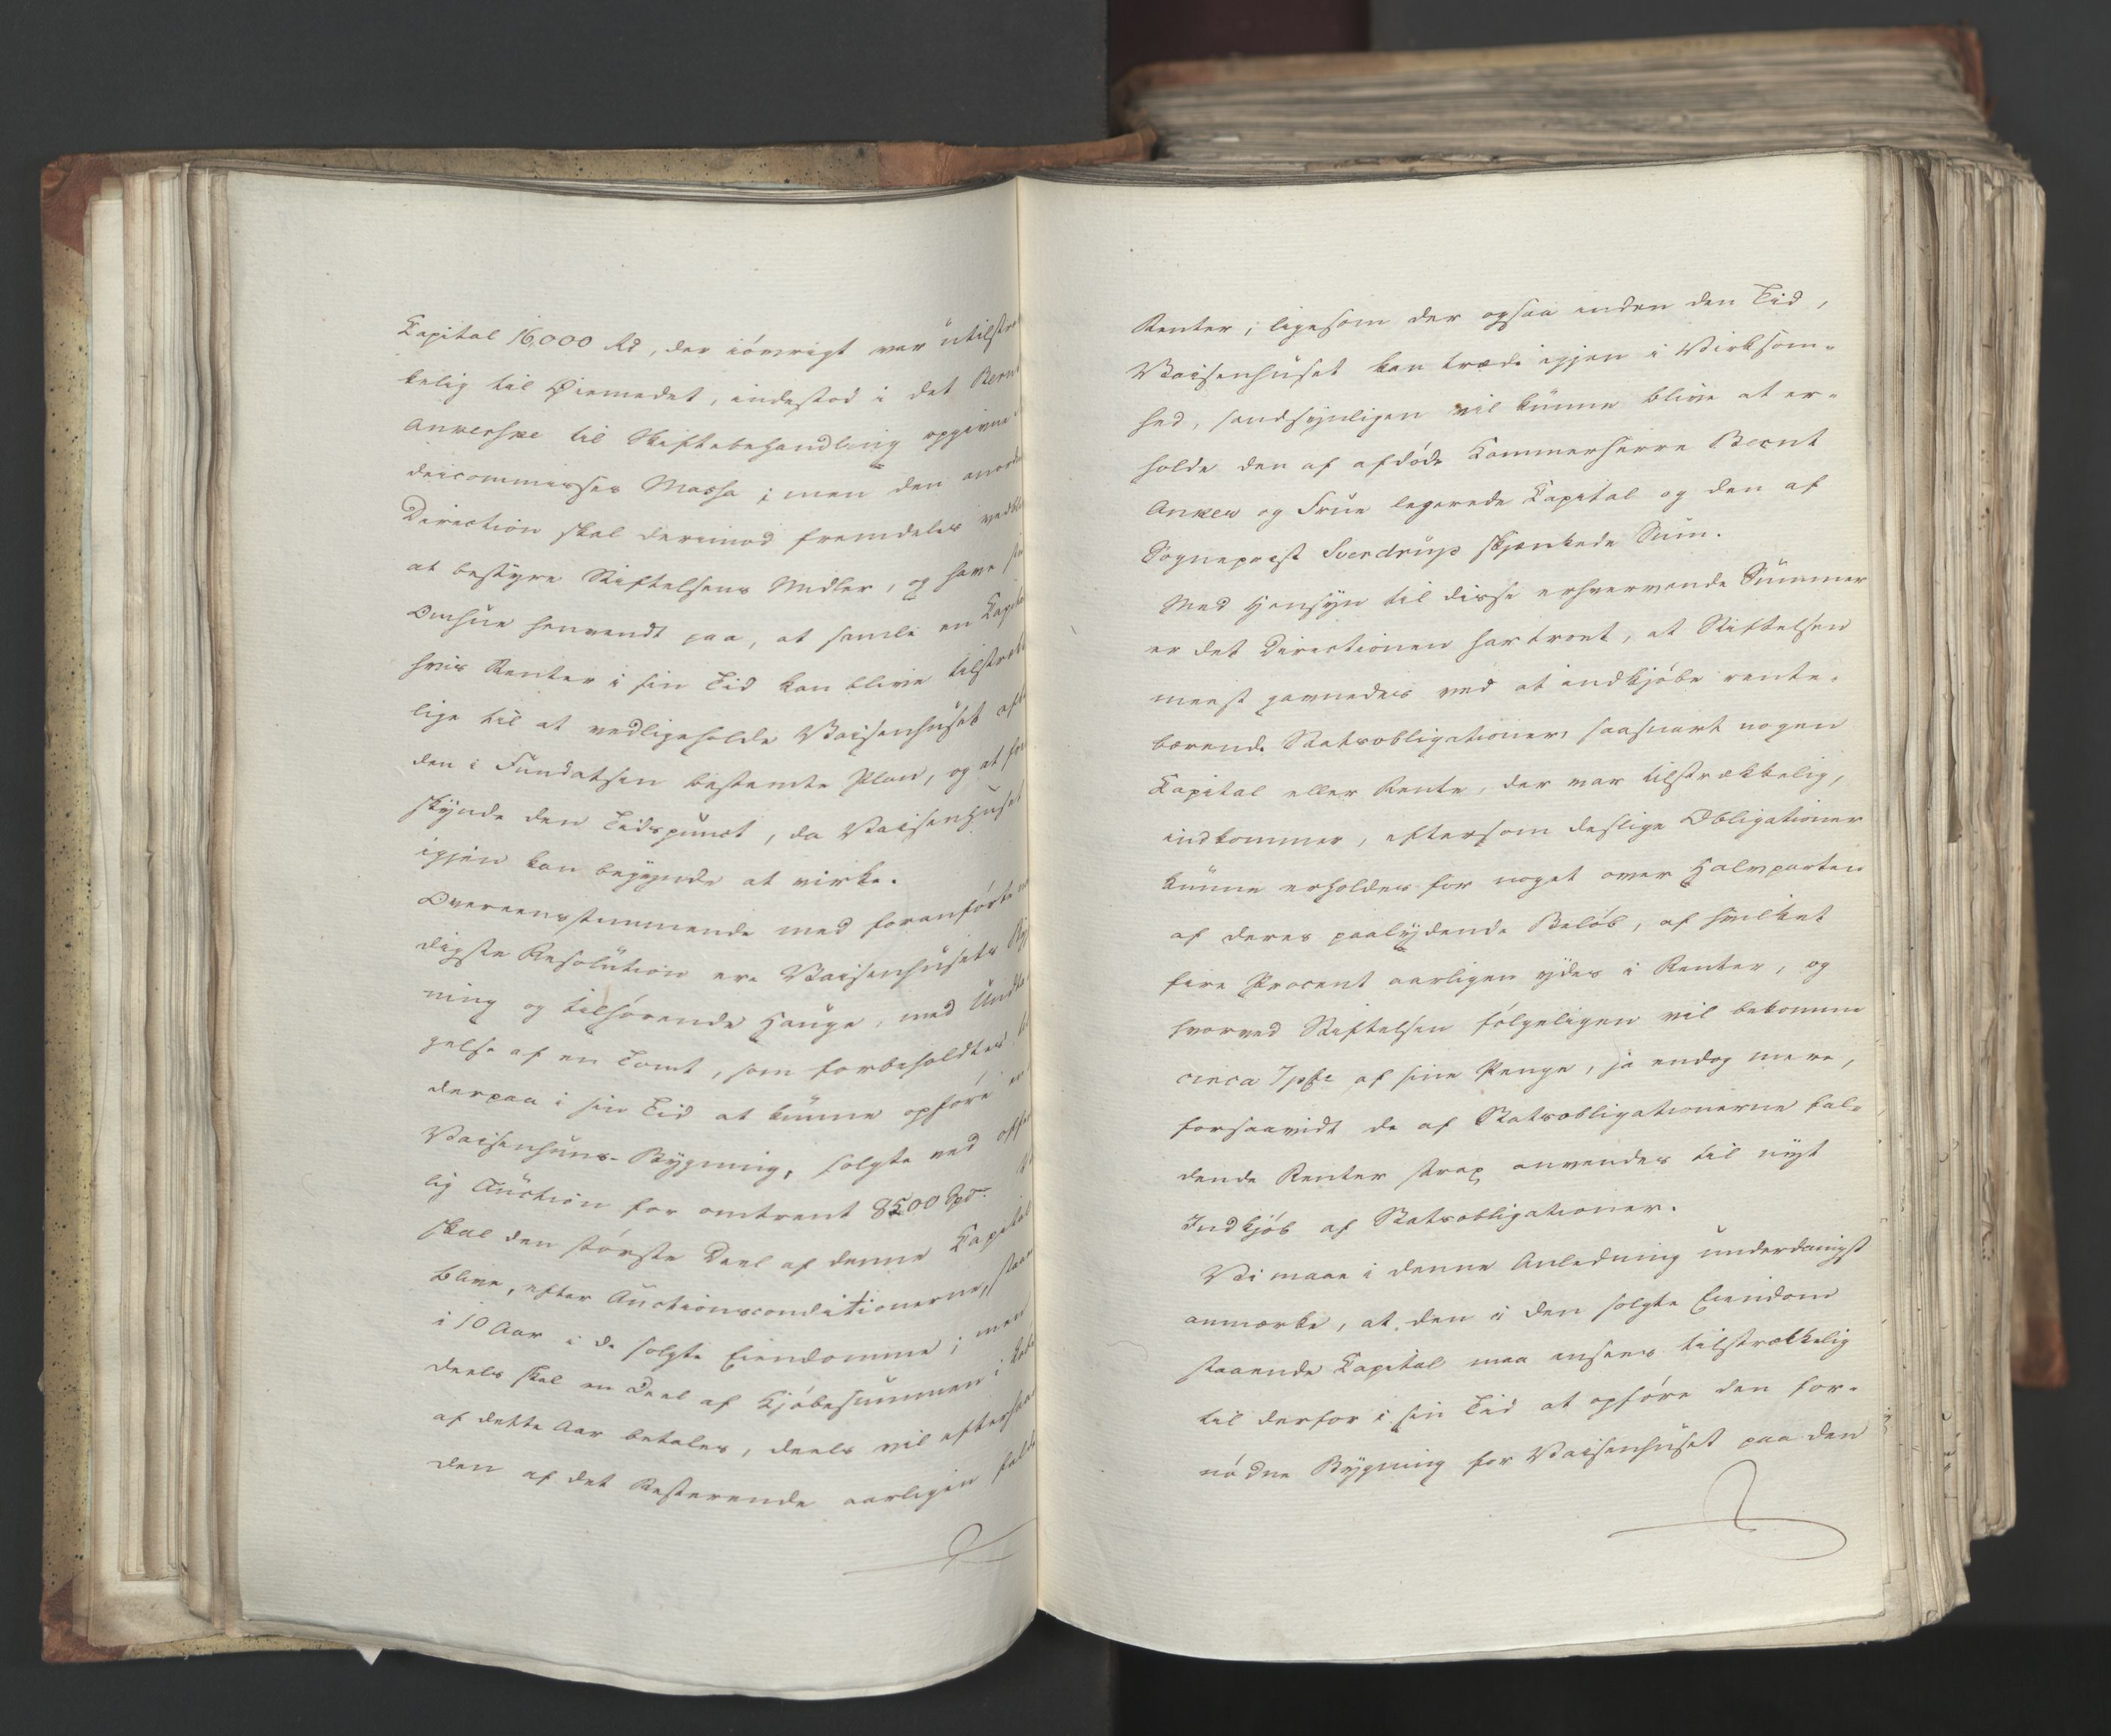 Capital 16,000 Rd, der iövrigt var utilstræ
kelig til Øiemedet, indestod i det Bernt
Ankerske til Skiftebehandling opgivne
deicommisses Massa; men den anord
Direction skal derimod fremdeles vedbl
at bestyre Stiftelsens Midler, og have sin
Omhue henvendt paa, at samle en Capital
hvis Renter i sin Tid kan blive tilstræk
lige til at vedligeholde Vaisenhuset eft
den i Fundatsen bestemte Plan, og at frem
skynde den Tidspunct, da Vaisenhuset
igjen kan begynde at virke.
Overeensstemmende med foranförte
digste Resolution ere Vaisenhusets Byg
ning og tilhörende Hauge, med Undta
gelse af en Tomt, som forbeholdtes
derpaa i sin Tid at kunne opföre en
Vaisenhuus-Bygning, solgte ved offent
lig Auction for omtrent 8500 Spd.
skal den störste Deel af denne Capital
blive, efter Auctionsconditionerne, staae
i 10 Aar i de solgte Eiendomme; men
deels skal en Deel af Kjöbesummen i Löb
af dette Aar betales, deels vil efterhaan
den af det Resterende aarligen falde
Renter; ligesom der ogsaa inden den Tid,
Vaisenhuset kan træde igjen i Virksom-
hed, sandsynligen vil kunne blive at er-
holde den af afdöde Kammerherre Bernt
Anker og Frue legerede Capital og den af
Sogneprest Sverdrup skjænkede Sum.
Med Hensyn til disse erhvervende Summer
er det Directionen har troet, at Stiftelsen
meest gavnedes ved at indkjöbe rente-
bærende Statsobligationer, saasnart nogen
Capital eller Rente, der var tilstrækkelig,
indkommer, eftersom deslige Obligationer
kunne erholdes for noget over Halvparten
af deres paalydende Belöb, af hvilket
fire Procent aarligen ydes i Renter, og
hvorved Stiftelsen fölgeligen vil bekomme
circa 7 pCt af sine Penge, ja endog mere,
forsaavidt de af Statsobligationerne fal-
dende Renter strax anvendes til nyt
Indkjöb af Statsobligationer.
Vi maae i denne Anledning underdanigst
anmærke, at den i den solgte Eiendom
staaende Capital maa ansees tilstrækkelig
til derfor i sin Tid at opföre den for-
nödne Bygning for Vaisenhuset paa den